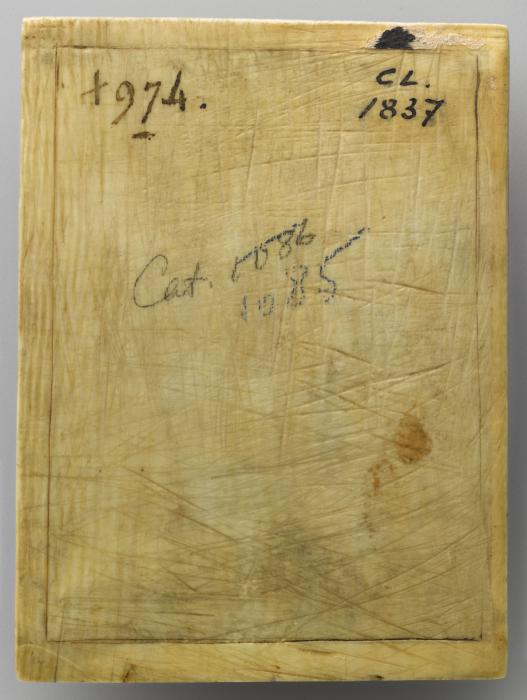 +974.
CL.
1837
Cat. 1086
1085